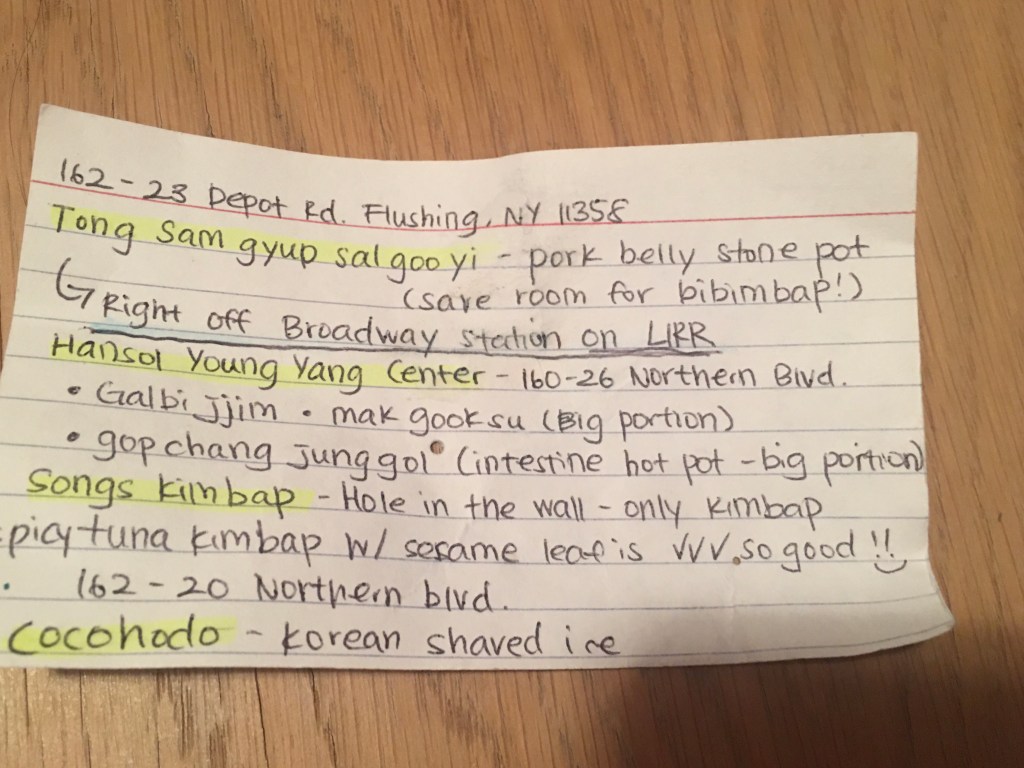 162-23 Depot Rd. Flushing, NY 11358
Tong sam gyup sal goo yi - pork belly stone pot
(save room for bibimbap!)
Right off Broadway station on LIRR
Hansol Young Yang Center - 160-26 Northern Blvd.
• Galbi jjim • mak gook su (Big portion)
• gop chang junggol (intestine hot pot - big portion)
Songs kimbap - Hole in the wall - only kimbap
picy tuna kimbap w/ sesame leaf is VVV.so good !!
• 162-20 Northern blvd.
Cocohodo - korean shaved ice